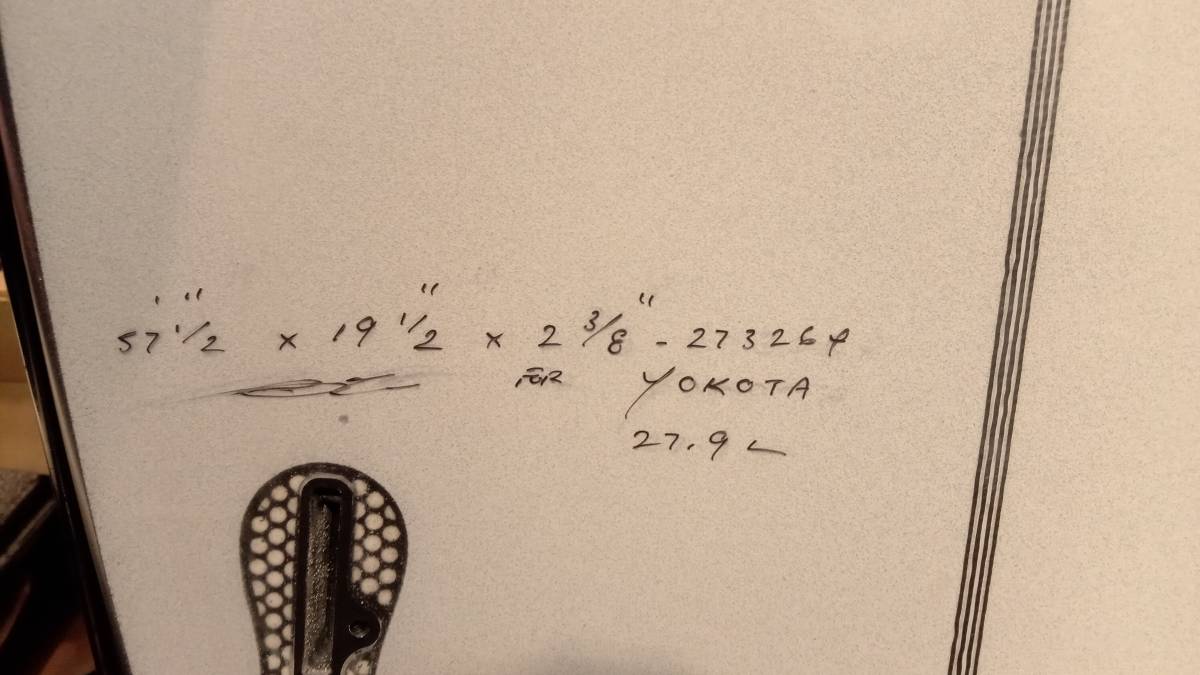 57 1/2" x 19 1/2" x 2 3/8" - 27326
FOR YOKOTA
27.9 L